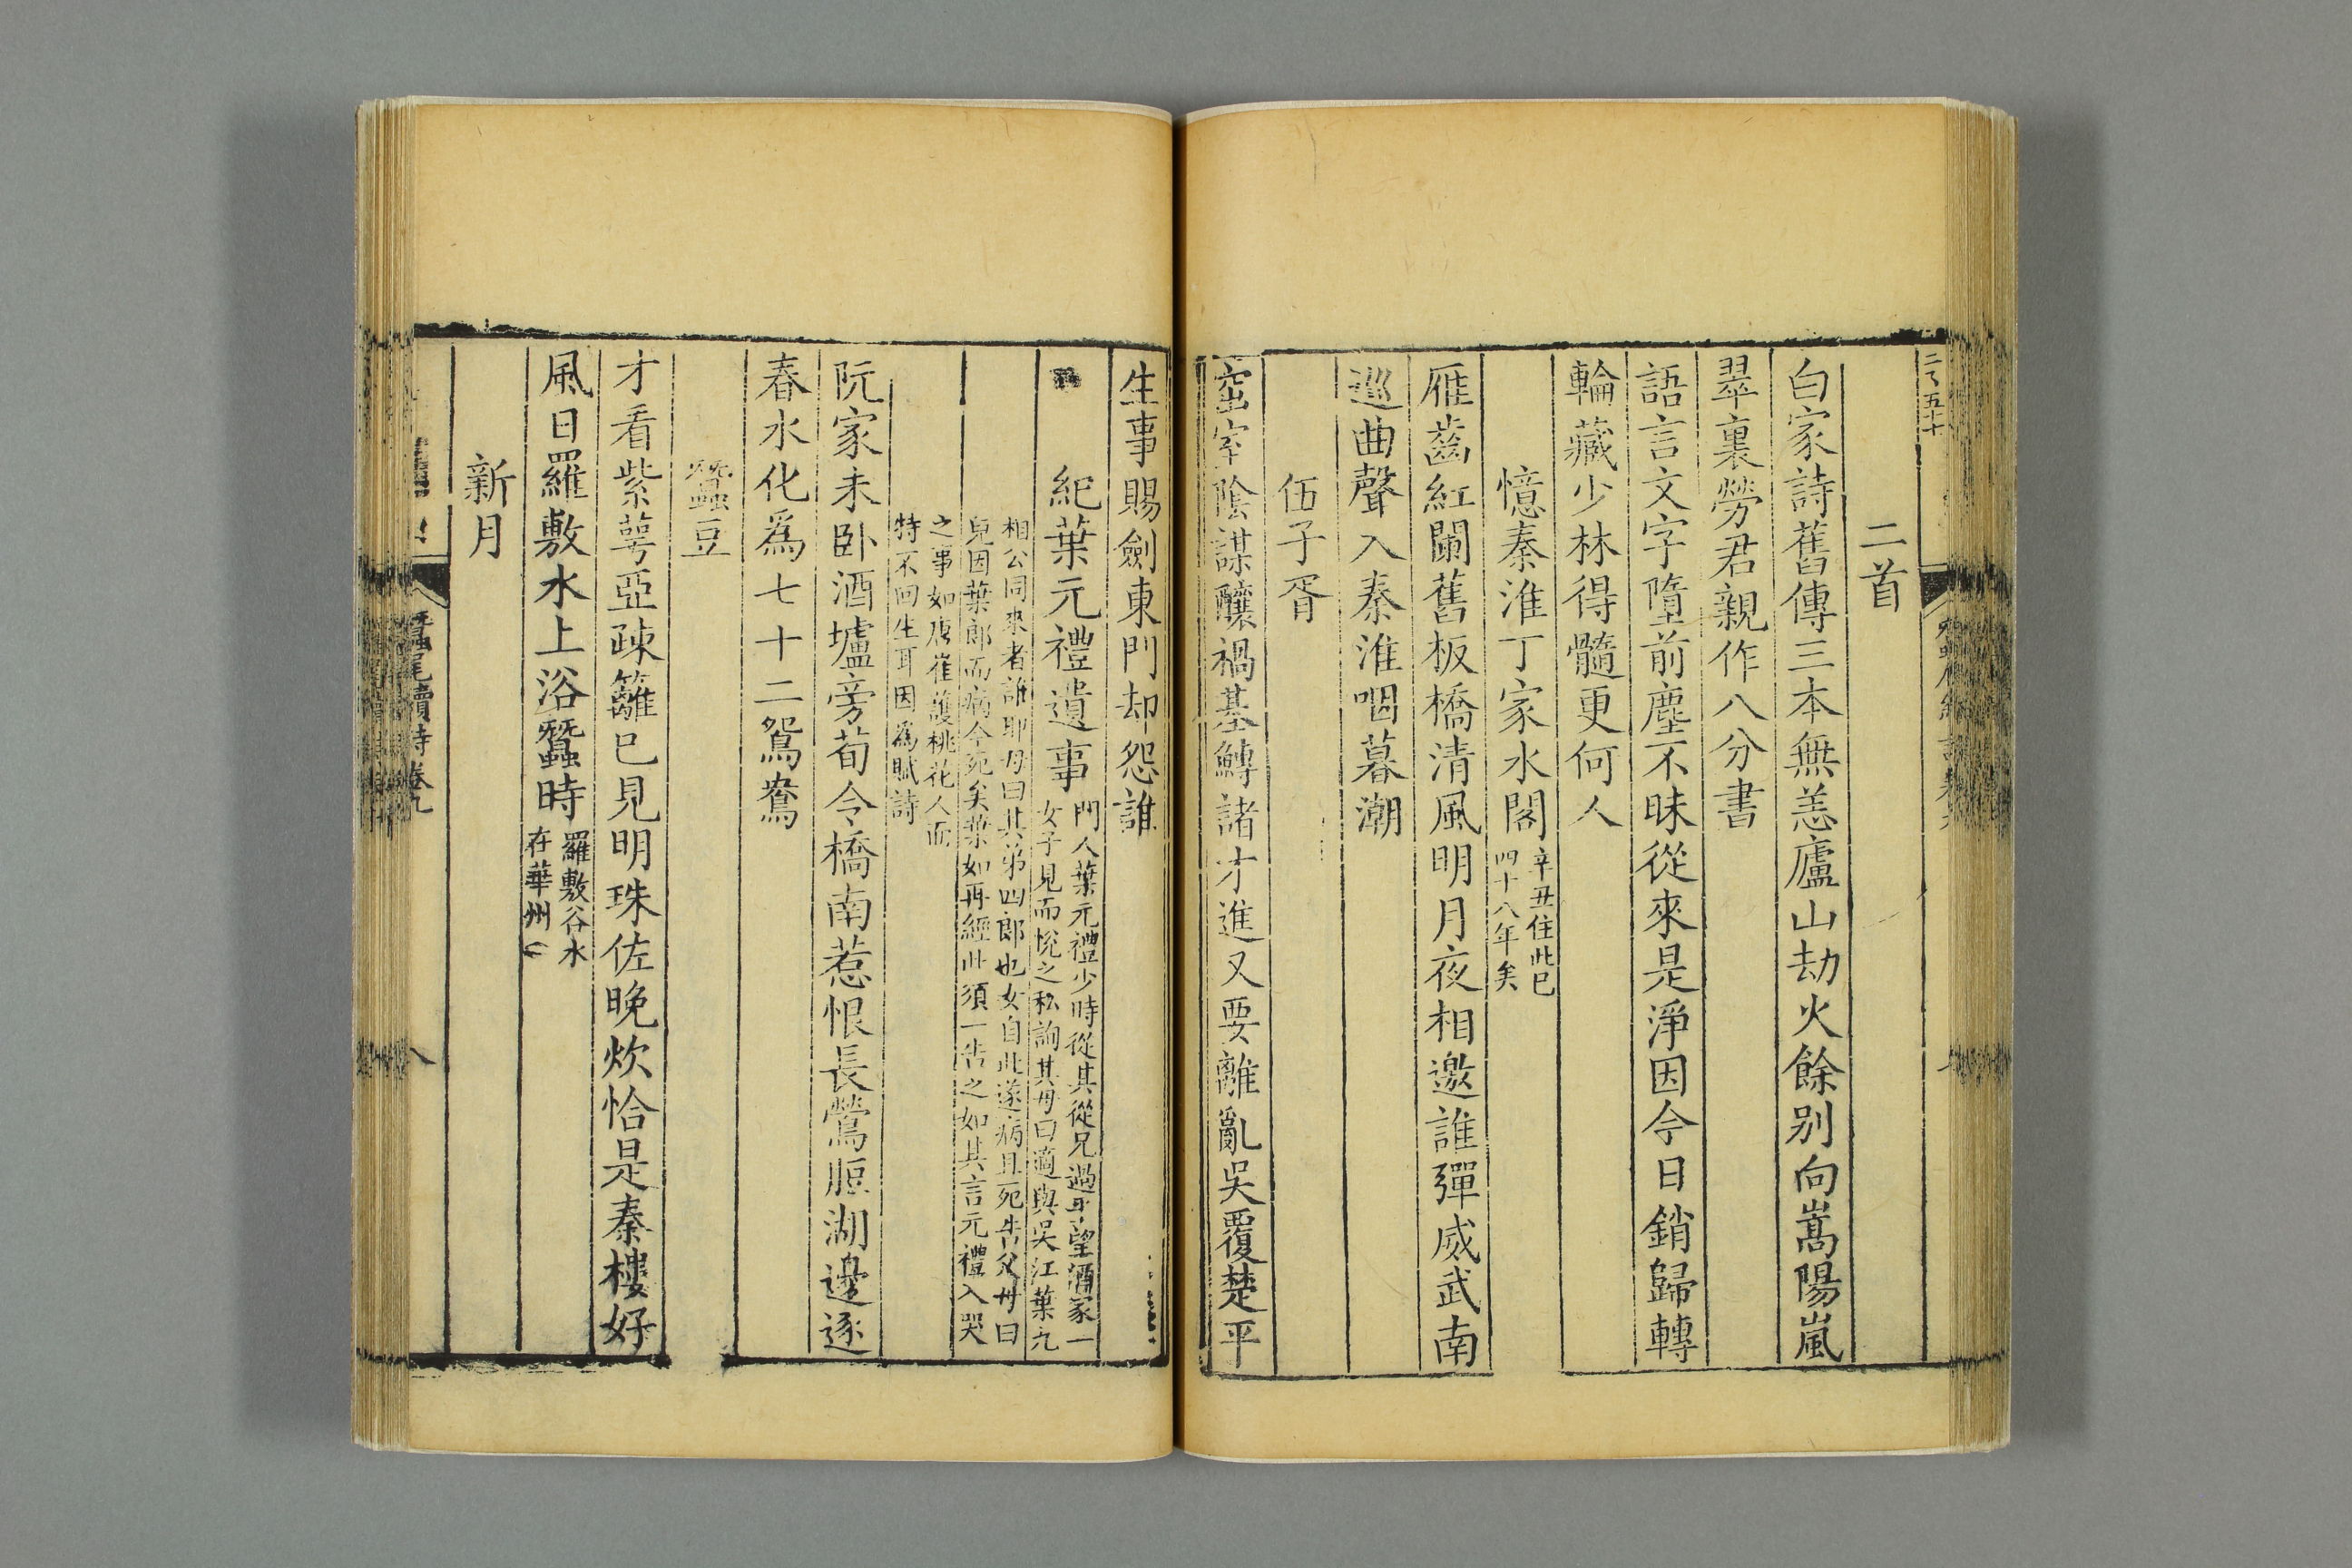 二首
白家詩舊傳三本無恙廬山劫火餘别向嵩陽嵐
翠裏勞君親作八分書
語言文字墮前塵不昧從來是淨因今日銷歸轉
輪藏少林得髓更何人
憶秦淮丁家水閣辛丑住此已四十八年矣
雁齒紅闌舊板橋清風明月夜相邀誰彈威武南
巡曲聲入秦淮咽暮潮
伍子胥
窋室陰謀釀禍基鱄諸才進又要離亂吳覆楚平
生事賜劍東門却怨誰
紀葉元禮遺事門人葉元禮少時從其從兄過平望酒家一
女子見而悅之私詢其母曰適與吳江葉九
相公同來者誰耶母曰其弟四郎也女自此遂病且死告父母曰
兒因葉郎而病今死矣葉如再經此須一告之如其言元禮入哭
之事如唐崔護桃花人面
特不回生耳因為賦詩
阮家未卧酒壚旁荀令橋南惹恨長鶯脰湖邊逐
春水化為七十二鴛鴦
蠶豆
才看紫萼亞疎籬已見明珠佐晚炊恰是秦樓好
風日羅敷水上浴蠶時羅敷谷水
在華州
新月
蠶尾續詩卷九
八